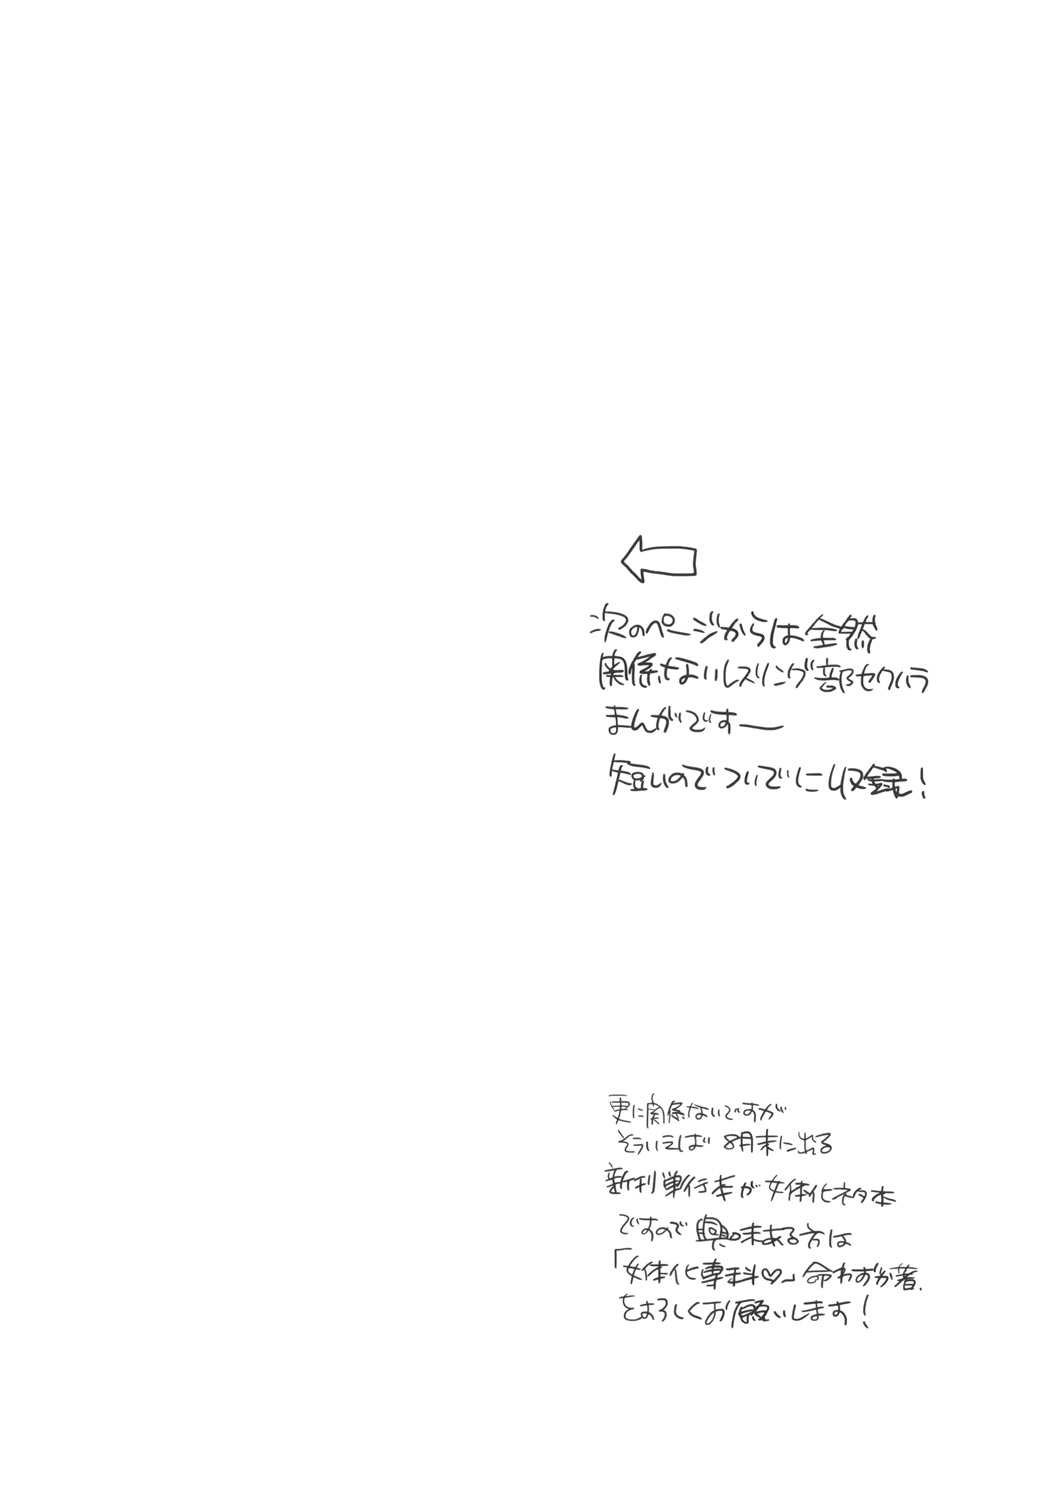 次のページからは全然
関係ないレスリング部セクハラ
まんがですー
短いのでついでに収録！
更に関係ないですが
そういえば8月末に出る
新刊単行本が女体化ネタ本
ですので興味ある方は
「女体化専科♡」命わずか著.
をよろしくお願いします！